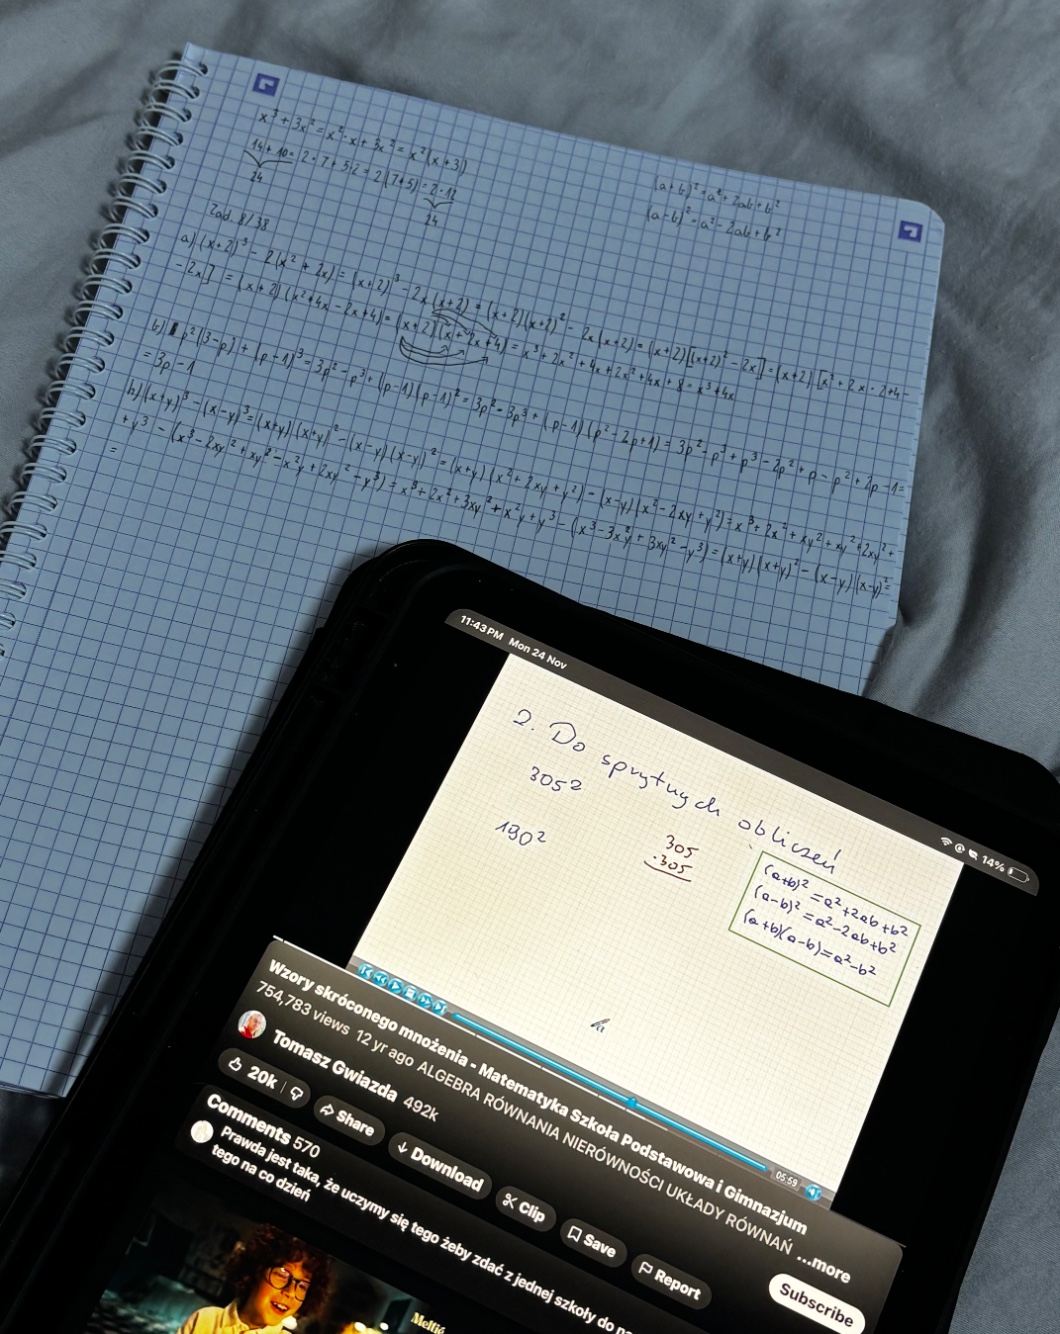 x³ + 3x² = x²·x + 3x² = x²(x+3)
14 + 10 = 2·7 + 5·2 = 2(7+5) = 2·12
24
24
(a+b)² = a² + 2ab + b²
(a-b)² = a² - 2ab + b²
Zad. 8/38
a) (x+2)³ - 2(x² + 2x) = (x+2)³ - 2x(x+2) = (x+2)(x+2)² - 2x(x+2) = (x+2)[(x+2)² - 2x] = (x+2)·[x² + 2x·2 + 4 -
- 2x] = (x+2)(x² + 4x - 2x + 4) = (x+2)(x + 2x + 4) = x³ + 2x² + 4x + 2x² + 4x + 8 = x³ + 4x
b) p²(3-p) + (p-1)³ = 3p² - p³ + (p-1)(p-1)² = 3p² - 3p³ + (p-1)(p² - 2p + 1) = 3p² - p³ + p³ - 2p² + p - p² + 2p - 1 =
= 3p - 1
h) (x+y)³ - (x-y)³ = (x+y)(x+y)² - (x-y)(x-y)² = (x+y)(x² + 2xy + y²) - (x-y)(x² - 2xy + y²) = x³ + 2x² + xy² + xy² + 2xy² +
+ y³ - (x³ - 2xy² + xy² - x²y + 2xy² - y³) = x³ + 2x² + 3xy² + x²y + y³ - (x³ - 3x²y + 3xy² - y³) = (x+y)(x+y)² - (x-y)(x-y)² =
=
11:43 PM Mon 24 Nov
14%
2. Do sprytnych obliczeń
305²
190²
305
·305
(a+b)² = a²+2ab+b²
(a-b)² = a²-2ab+b²
(a+b)(a-b) = a²-b²
05:59
Wzory skróconego mnożenia - Matematyka Szkoła Podstawowa i Gimnazjum
754,783 views 12 yr ago ALGEBRA RÓWNANIA NIERÓWNOŚCI UKŁADY RÓWNAŃ ...more
Tomasz Gwiazda 492k
Subscribe
20k
Share
Download
Clip
Save
Report
Comments 570
Prawda jest taka, że uczymy się tego żeby zdać z jednej szkoły do
tego na co dzień